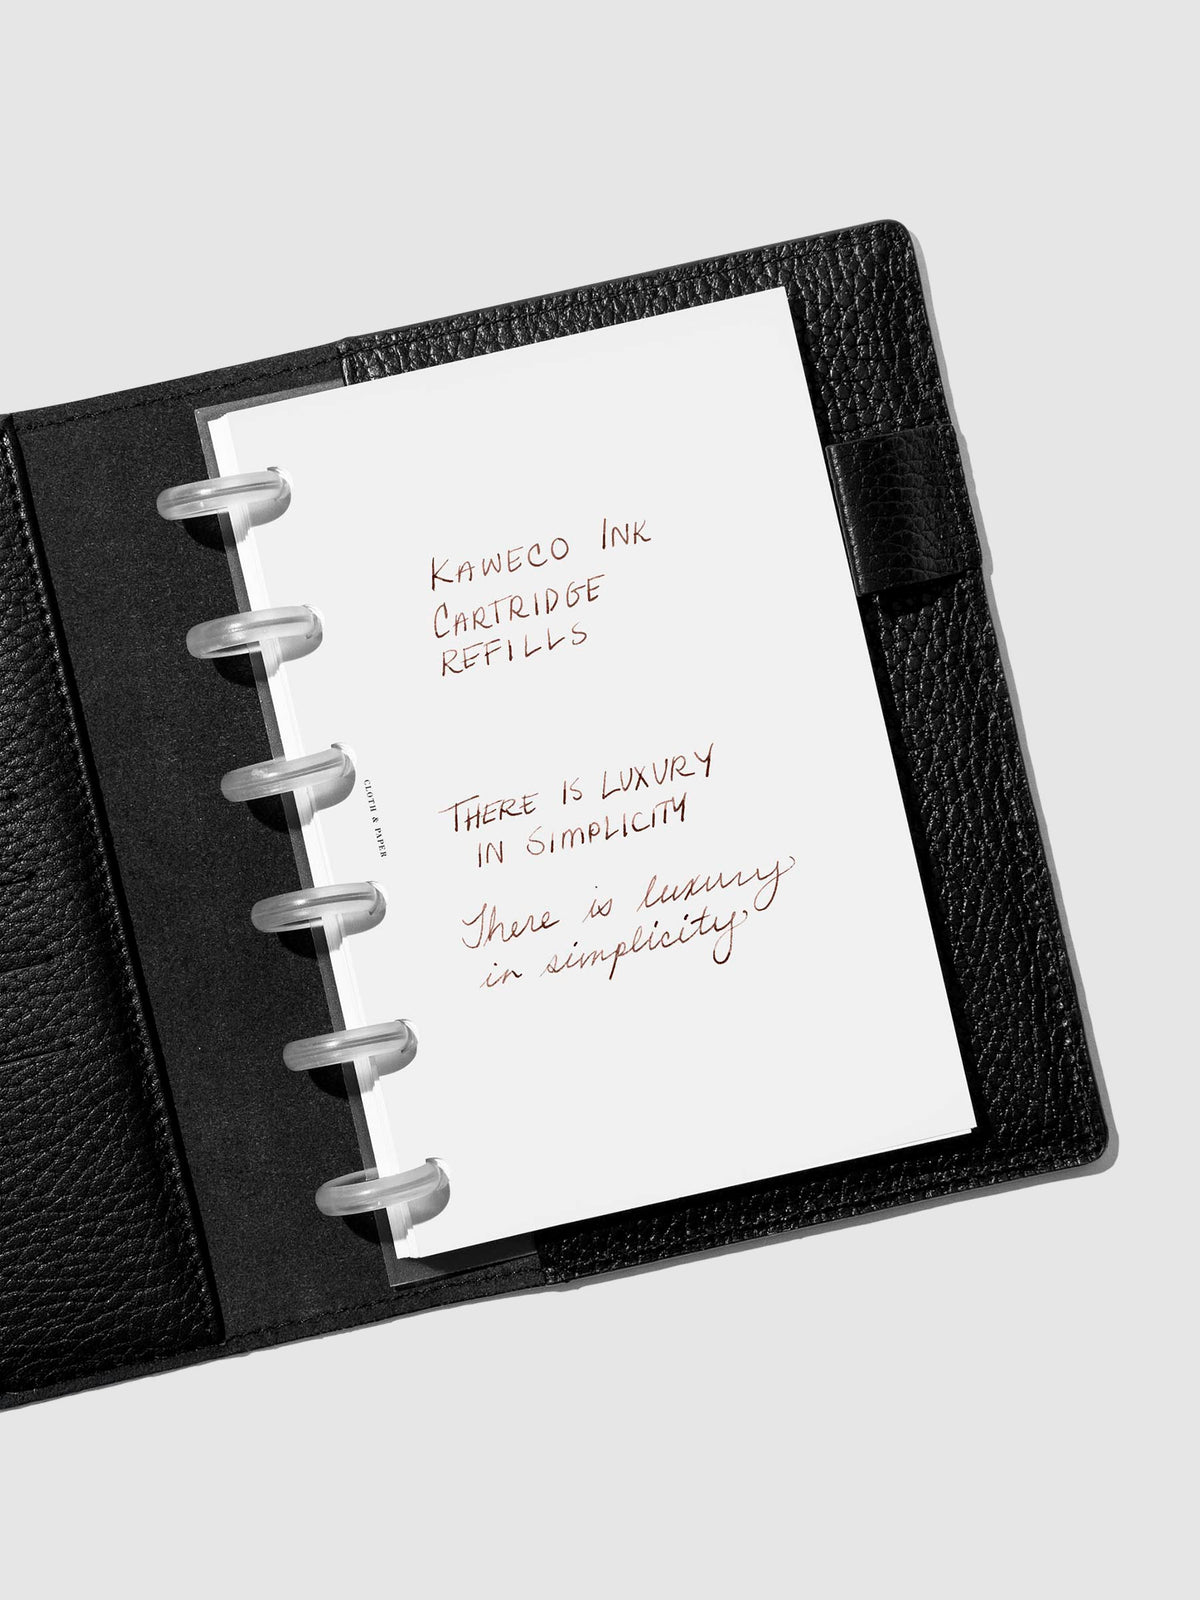 KAWECO INK
CARTRIDGE
REFILLS
CLOTH & PAPER
THERE IS LUXURY
IN SIMPLICITY
There is luxury
in simplicity